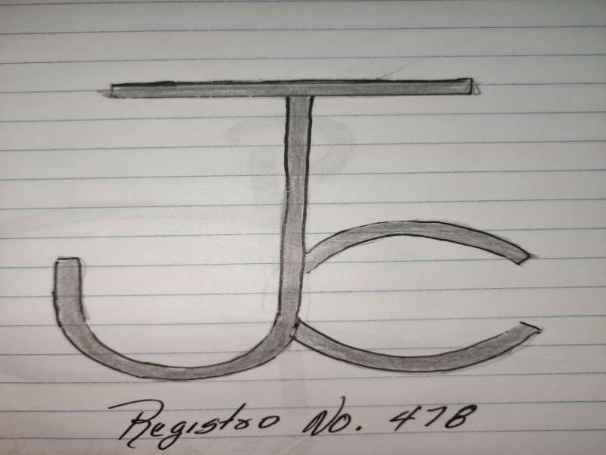 JC
Registro No. 478